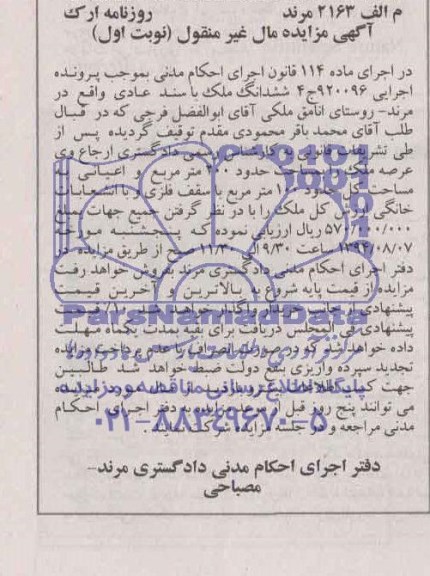 م الف ۲۱۶۳ مرند روزنامه ارک
آگهی مزایده مال غیر منقول (نوبت اول)
در اجرای ماده ۱۱۴ قانون اجرای احکام مدنی بموجب پرونده
اجرایی ۹۲۰۰۹۶ج۴ ششدانگ ملک با سند عادی واقع در
مرند- روستای انامق ملکی آقای ابوالفضل فرجی که در قبال
طلب آقای محمد باقر محمودی مقدم توقیف گردیده پس از
طی تشریفات قانونی به کارشناس رسمی دادگستری ارجاع وی
عرصه ملک به مساحت حدود متر مربع و اعیانی به
مساحت کل حدود متر مربع با سقف فلزی و با انشعابات
خانگی ارزش کل ملک را با در نظر گرفتن جمیع جهات بمبلغ
ریال ارزیابی نموده که پنجشنبه مورخه
۱۳۹۴/۰۸/۰۷ ساعت ۹/۳۰ الی ۱۱/۳۰ صبح از طریق مزایده در
دفتر اجرای احکام مدنی دادگستری مرند بفروش خواهد رفت
مزایده از قیمت پایه شروع به بالاترین و آخرین قیمت
پیشنهادی از جانب خریدار واگذار خواهد شد
پیشنهادی فی المجلس دریافت برای بقیه بمدت یکماه مهلت
داده خواهد شد که در صورت انصراف یا عدم پرداخت مزایده
تجدید سپرده واریزی بنفع دولت ضبط خواهد شد طالبین
جهت کسب اطلاعات
می توانند پنج روز قبل از موعد مزایده به دفتر اجرای احکام
مدنی مراجعه و در جلسه مزایده شرکت نمایند.
دفتر اجرای احکام مدنی دادگستری مرند-
مصباحی
ParsNamadData
پایگاه اطلاع رسانی مناقصه و مزایده
۰۲۱-۸۸۳۴۹۶۷۰-۵